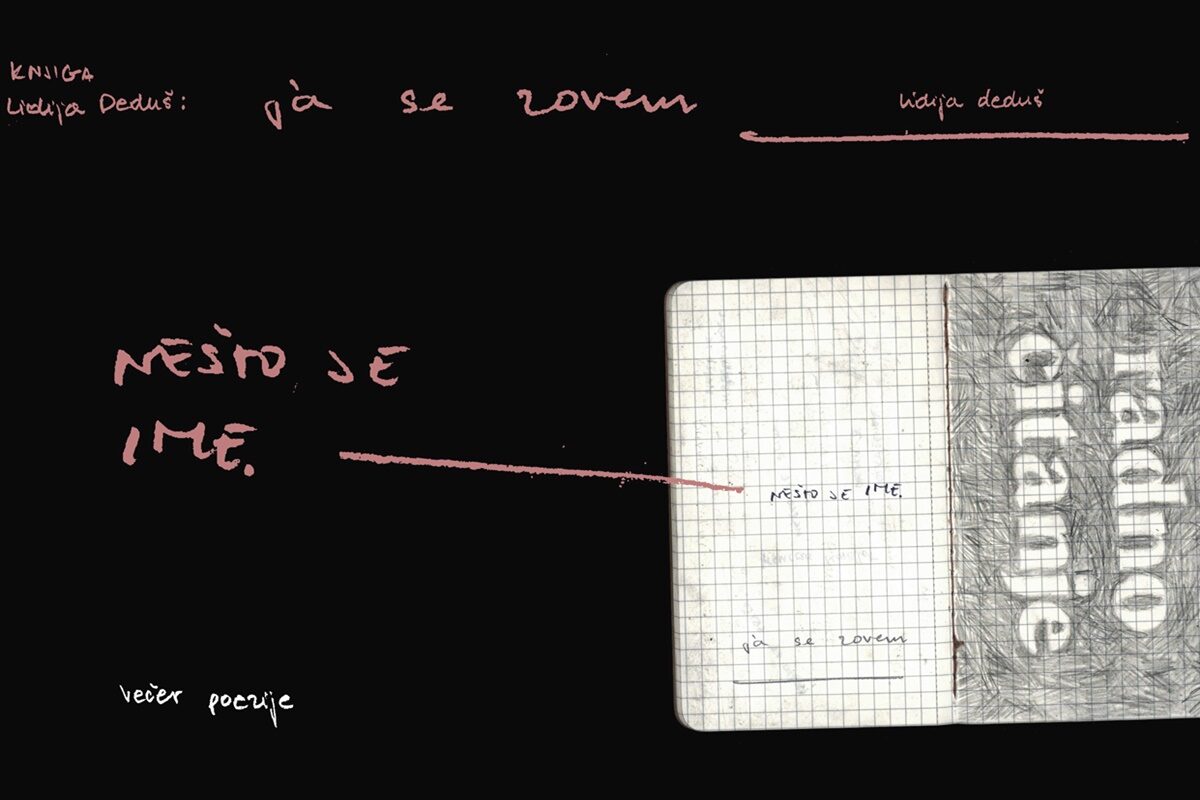 KNJIGA
Lidija Deduš: ja se zovem lidija deduš
NEŠTO JE
IME.
NEŠTO JE IME.
ja se zovem
radno
čitanje
večer poezije